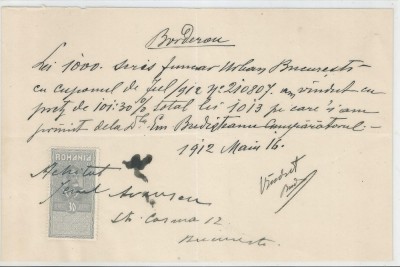 Borderou
Lei 1000. scris funciar Urban București
cu cuponul de Jul/912 Nº 210807. am vîndut cu
preț de 101:30 % total lei 1013 pe care i-am
primit dela Dl. Em Budișteanu Cumpărătorul —
1912 Mais 16.
Achitat
ROMANIA
Vîndut
Str. Cosena 12
București